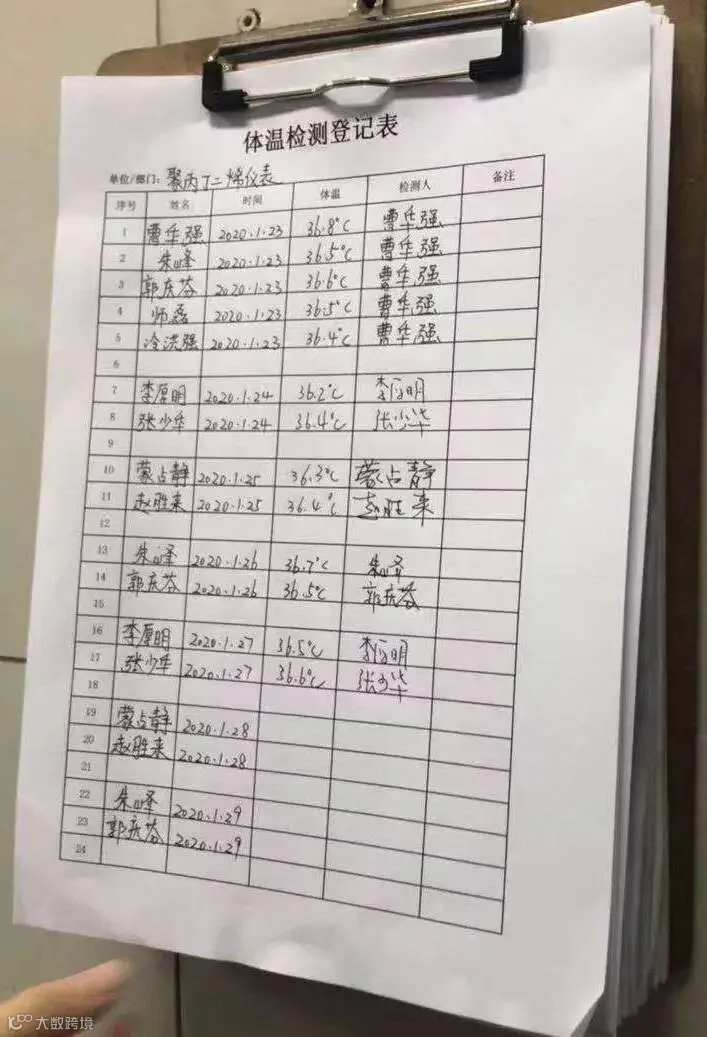 体温检测登记表
单位/部门：聚丙丁二烯仪表
序号 姓名 时间 体温 检测人 备注
1 曹华强 2020.1.23 36.8℃ 曹华强
2 朱峰 2020.1.23 36.5℃ 曹华强
3 郭庆芬 2020.1.23 36.6℃ 曹华强
4 师磊 2020.1.23 36.5℃ 曹华强
5 冷洪强 2020.1.23 36.4℃ 曹华强
6
7 李厚明 2020.1.24 36.2℃ 李厚明
8 张少华 2020.1.24 36.4℃ 张少华
9
10 蒙占静 2020.1.25 36.3℃ 蒙占静
11 赵胜来 2020.1.25 36.4℃ 赵胜来
12
13 朱峰 2020.1.26 36.7℃ 朱峰
14 郭庆芬 2020.1.26 36.5℃ 郭庆芬
15
16 李厚明 2020.1.27 36.5℃ 李厚明
17 张少华 2020.1.27 36.6℃ 张少华
18
19 蒙占静 2020.1.28
20 赵胜来 2020.1.28
21
22 朱峰 2020.1.29
23 郭庆芬 2020.1.29
24
大数跨境